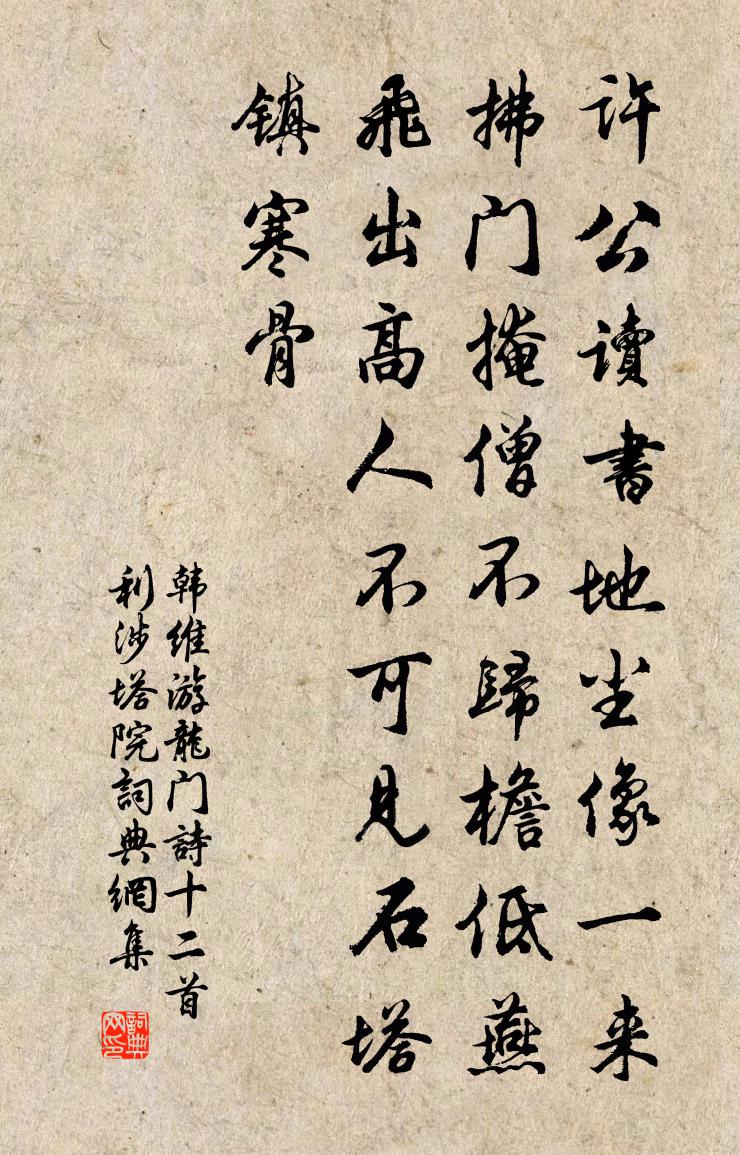 许公讀書地坐像一来
拂门掩僧不歸檐低燕
飛出高人不可見石塔
镇寒骨
韩维游龍门詩十二首
利涉塔院詞典網集
詞典网印